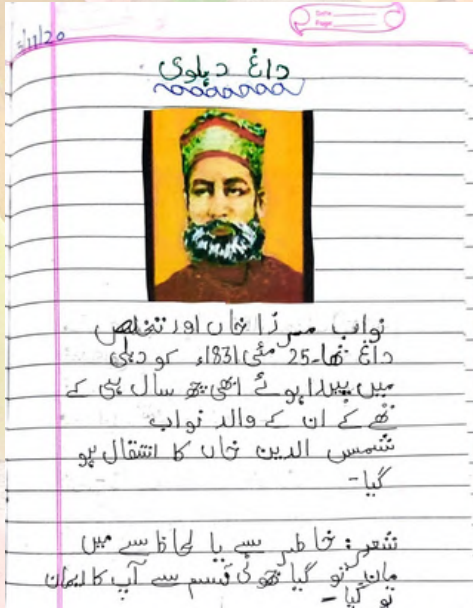 5/11/20
Date
Page
داغ دہلوی
نواب میرزا خاں اور تخلص
داغ تھا۔25 مئی 1831ء کو دہلی
میں پیدا ہوئے ابھی چھ سال ہی کے
تھے کے ان کے والد نواب
شمس الدین خاں کا انتقال ہو
گیا۔
شعر: خاطر سے یا لحاظ سے میں
مان تو گیا جھوٹی قسم سے آپ کا ایمان
تو گیا۔